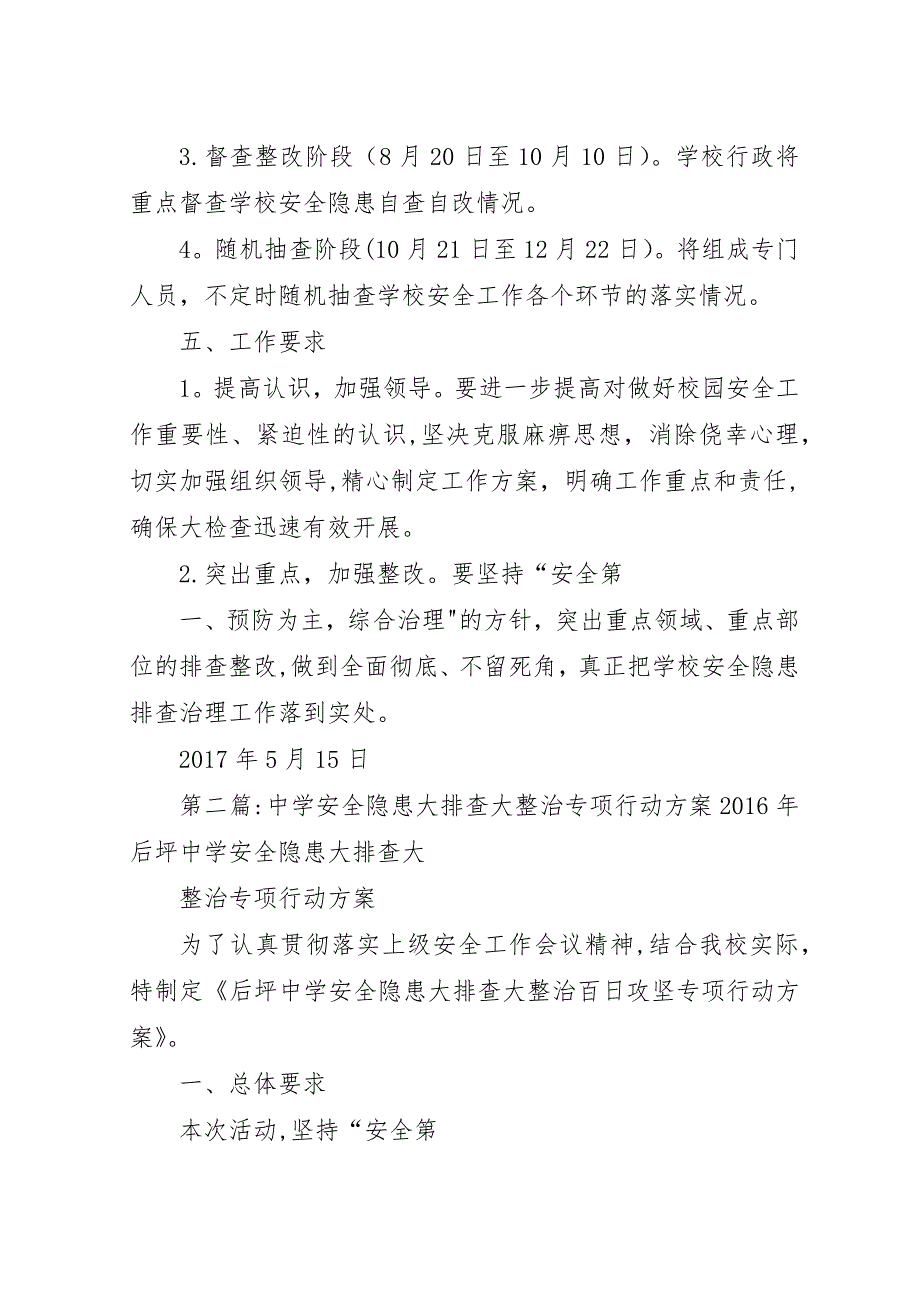 3.督查整改阶段（8月20日至10月10日）。学校行政将
重点督查学校安全隐患自查自改情况。
4。随机抽查阶段(10月21日至12月22日）。将组成专门
人员，不定时随机抽查学校安全工作各个环节的落实情况。
五、工作要求
1。提高认识，加强领导。要进一步提高对做好校园安全工
作重要性、紧迫性的认识,坚决克服麻痹思想，消除侥幸心理，
切实加强组织领导,精心制定工作方案，明确工作重点和责任,
确保大检查迅速有效开展。
2.突出重点，加强整改。要坚持“安全第
一、预防为主，综合治理"的方针，突出重点领域、重点部
位的排查整改,做到全面彻底、不留死角，真正把学校安全隐患
排查治理工作落到实处。
2017年5月15日
第二篇:中学安全隐患大排查大整治专项行动方案2016年
后坪中学安全隐患大排查大
整治专项行动方案
为了认真贯彻落实上级安全工作会议精神,结合我校实际，
特制定《后坪中学安全隐患大排查大整治百日攻坚专项行动方
案》。
一、总体要求
本次活动,坚持“安全第